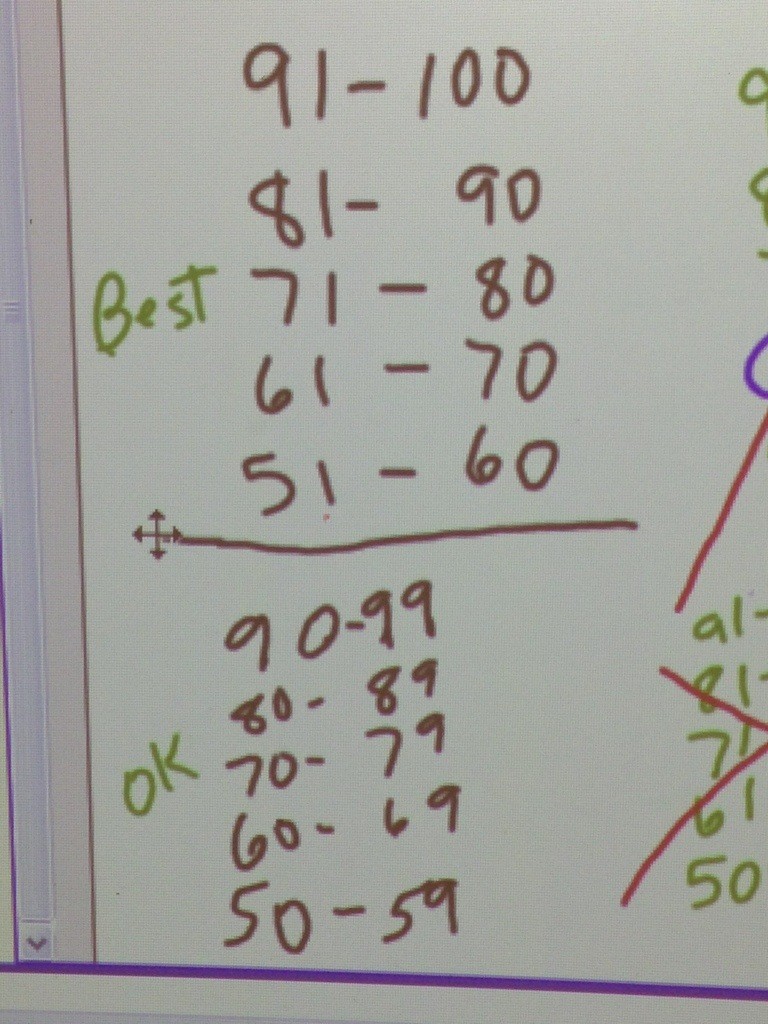 91-100
81- 90
Best 71 - 80
61 - 70
51 - 60
90-99
80- 89
OK 70- 79
60- 69
50-59
91-
81-
71
61
50